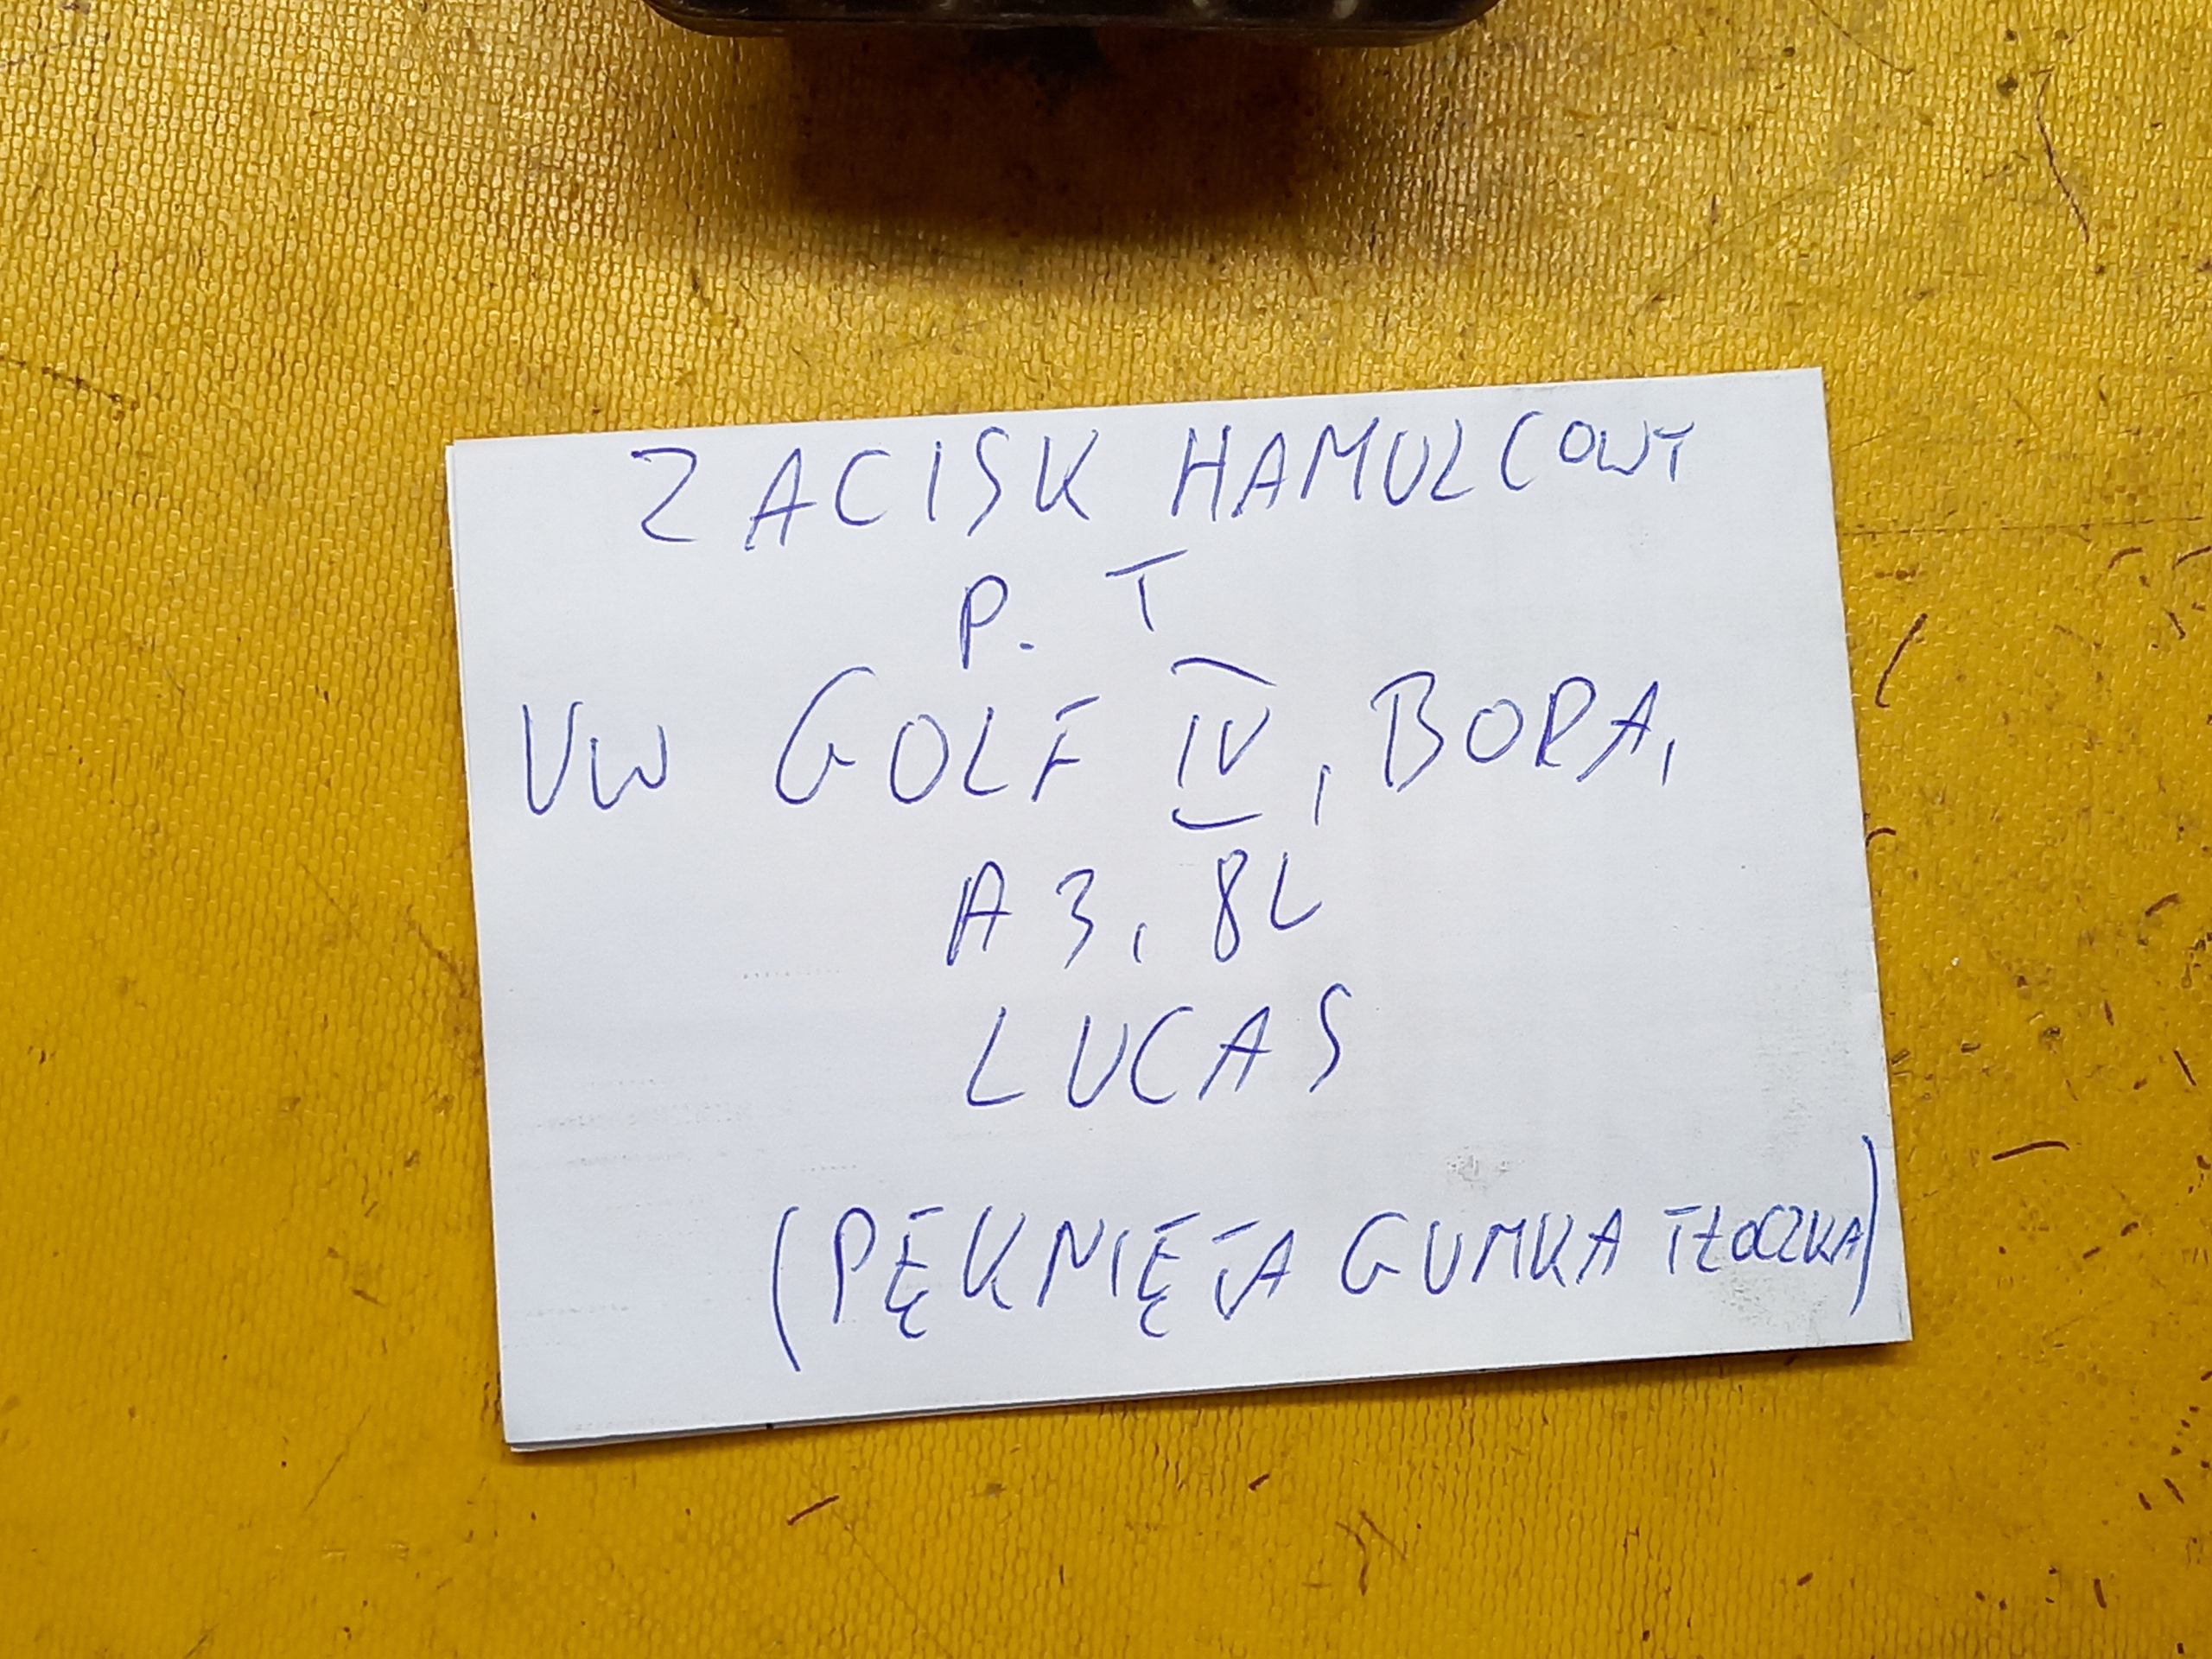 ZACISK HAMULCOWY
P. T
VW GOLF IV, BORA,
A3, 8L
LUCAS
(PĘKNIĘTA GUMKA TŁOCZKA)